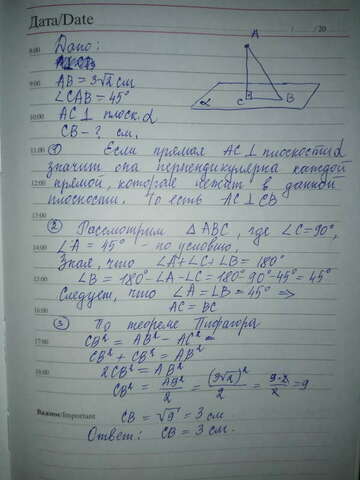 Дата/Date
/ / 20
8:00 Дано:
9:00 AB = 3√2 см
∠CAB = 45°
10:00 AC ⊥ плоск. α
CB - ? см.
A
α
C
B
11:00 ① Если прямая AC ⊥ плоскости α
значит она перпендикулярна каждой
12:00 прямой, которая лежат в данной
плоскости. То есть AC ⊥ CB
13:00
② Рассмотрим △ABC, где ∠C=90°,
14:00 ∠A = 45° - по условию,
Зная, что ∠A+∠C+∠B = 180°
∠B = 180°-∠A-∠C = 180° 90°-45° = 45°
Следует, что ∠A = ∠B = 45° ⇒
16:00 AC = BC
③ По теореме Пифагора
17:00 CB² = AB² - AC² =
CB² + CB² = AB²
18:00 2CB² = AB²
CB² = AB²/2 = (3√2)²/2 = 9·2/2 = 9
Важное/Important CB = √9 = 3 см
Ответ: CB = 3 см.